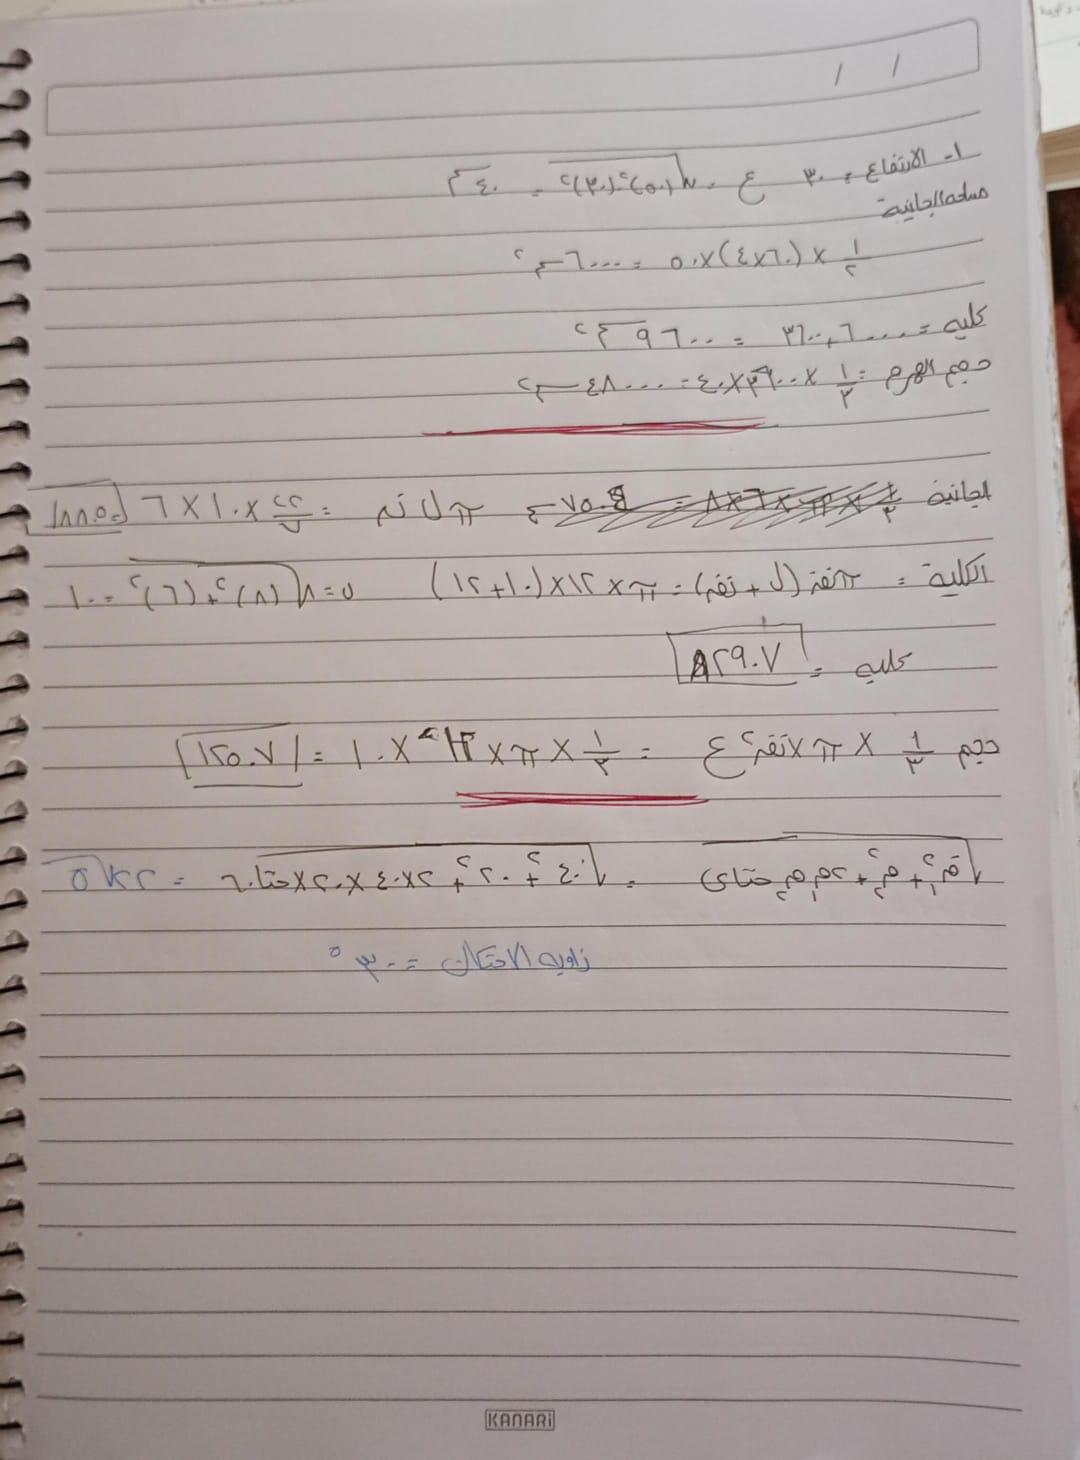 / /
١- الارتفاع = ٣٠ ع = √(٥٠)² - (٣٠)² = ٤٠ سم
مساحة الجانبية
١/٢ × (٦٠×٤) × ٥٠ = ٦٠٠٠ سم²
كليه = ٦٠٠٠ + ٣٦٠٠ = ٩٦٠٠ سم²
حجم الهرم = ١/٣ × ٣٦٠٠ × ٤٠ = ٤٨٠٠٠ سم³
الجانبية π ل نق = ٢٢/٧ × ١٠ × ٦ = ١٨٨.٥
الكلية = π نق (ل + نق) = π × ١٢ × (١٠ + ١٢) ل = √(٨)² + (٦)² = ١٠
كليه = ٨٢٩.٧
حجم ١/٣ × π × نق² ع = ١/٣ × π × ² × ١٠ = ١٢٥.٧
√ق١² + ق٢² + ٢ق١ق٢ حتاى = √٤٠² + ٢٠² + ٢×٤٠×٢٠×حتا٦٠ =
زاويه الاحتكاك = ٣٠°
KANARI